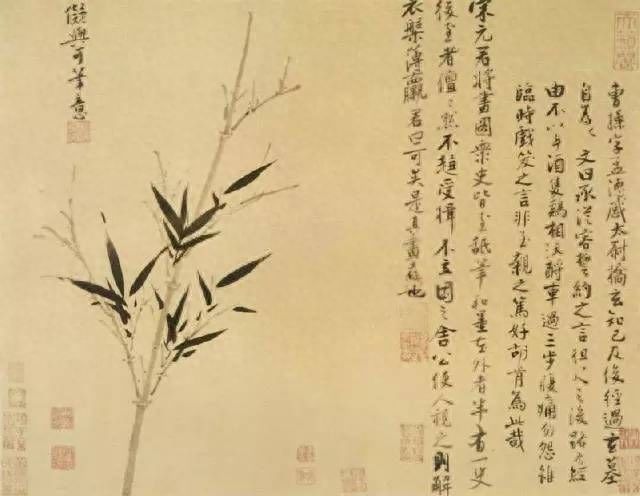 曹操字孟德感太尉橋玄知己及後經過玄墓
自為之文曰承從容誓約之言徂没之後路有經
由不以斗酒隻鷄相沃酹車過三步腹痛勿怨雖
臨時戲笑之言非至親之篤好胡肯為此哉
宋元君將畫圖衆史皆至舐筆和墨在外者半有一史
後至者儃〻然不趨受揖不立因之舍公使人視之則解
衣槃薄臝君曰可矣是真畫者也
擬與可筆意